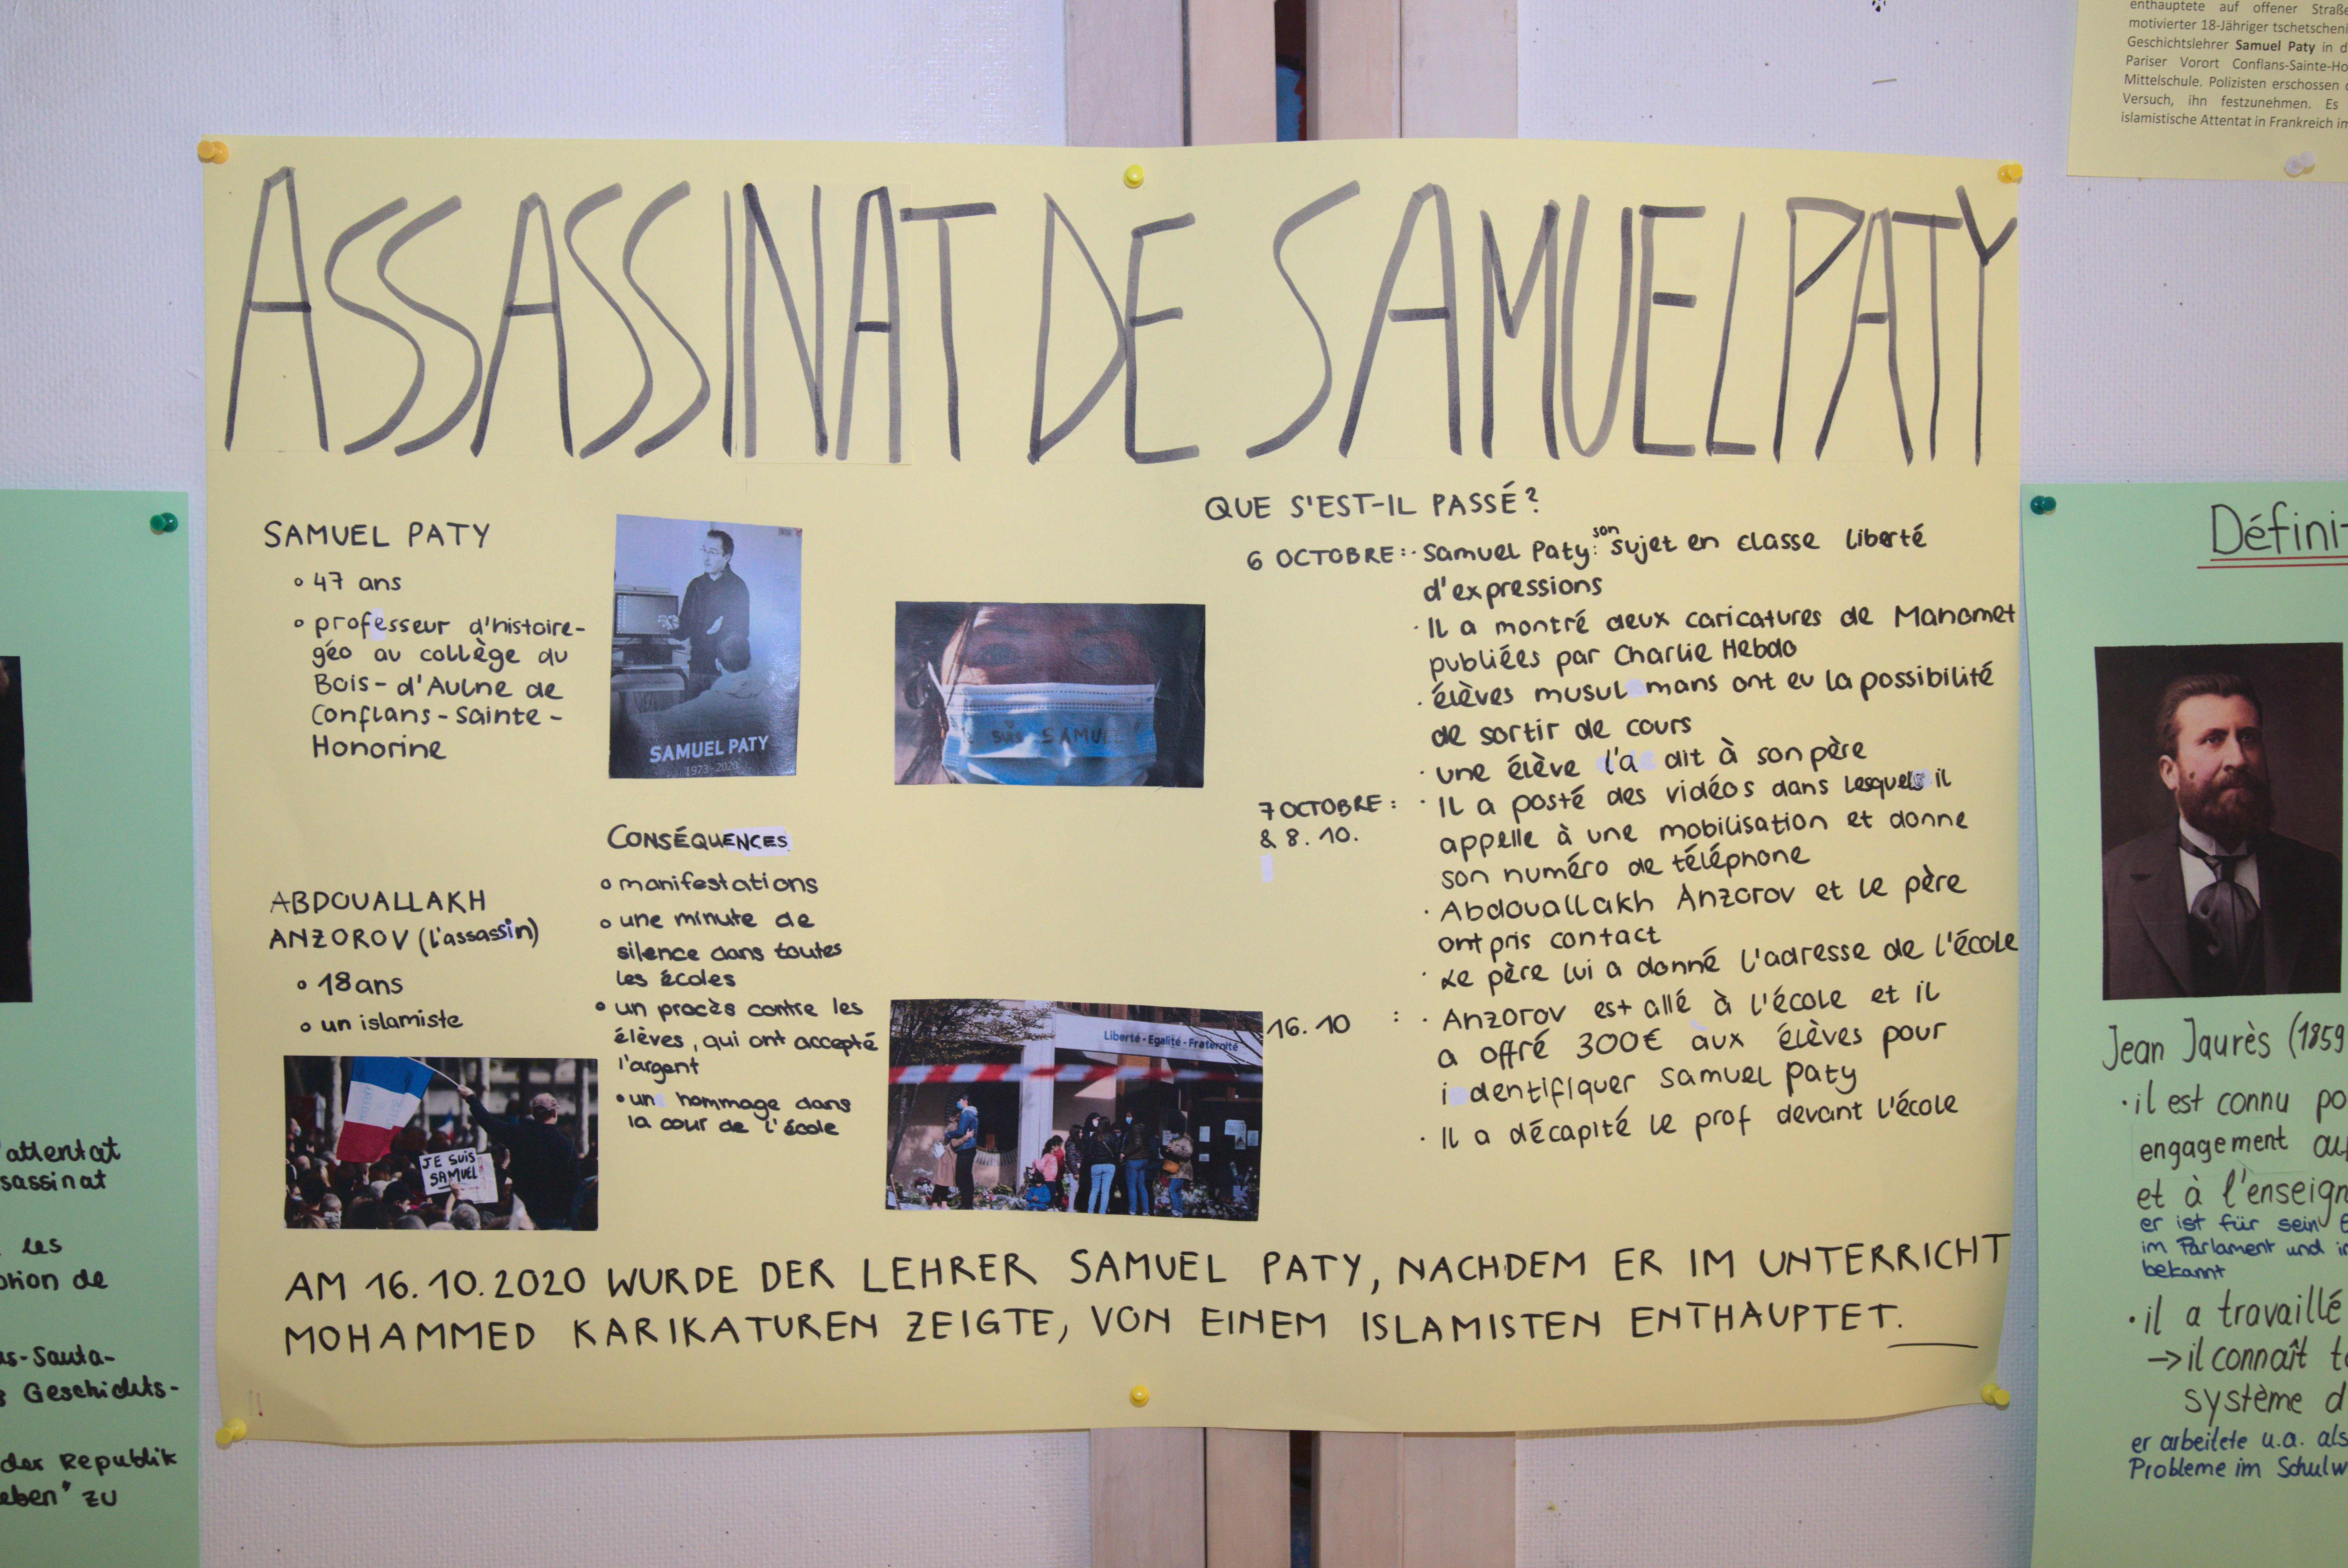 enthauptete auf offener Straße
motivierter 18-Jähriger tschetscheni
Geschichtslehrer Samuel Paty in d
Pariser Vorort Conflans-Sainte-Ho
Mittelschule. Polizisten erschossen
Versuch, ihn festzunehmen. Es
islamistische Attentat in Frankreich im
ASSASSINAT DE SAMUEL PATY
SAMUEL PATY
47 ans
professeur d'histoire-
géo au collège du
Bois-d'Aulne de
Conflans-Sainte-
Honorine
SAMUEL PATY
1973-2020
suis SAMUEL
ABDOUALLAKH
ANZOROV (l'assassin)
18 ans
un islamiste
JE SUIS
SAMUEL
CONSÉQUENCES
manifestations
une minute de
silence dans toutes
les écoles
un procès contre les
élèves, qui ont accepté
l'argent
un hommage dans
la cour de l'école
Liberté - Egalité - Fraternité
QUE S'EST-IL PASSÉ?
6 OCTOBRE: · Samuel Paty: son sujet en classe liberté
d'expressions
· Il a montré deux caricatures de Mahomet
publiées par Charlie Hebdo
· élèves musulmans ont eu la possibilité
de sortir de cours
· une élève l'a dit à son père
7 OCTOBRE: · Il a posté des vidéos dans lesquels il
& 8. 10. appelle à une mobilisation et donne
son numéro de téléphone
· Abdouallakh Anzorov et le père
ont pris contact
· Le père lui a donné l'adresse de l'école
16.10 : · Anzorov est allé à l'école et il
a offré 300€ aux élèves pour
identifiquer Samuel Paty
· Il a décapité le prof devant l'école
AM 16.10.2020 WURDE DER LEHRER SAMUEL PATY, NACHDEM ER IM UNTERRICHT
MOHAMMED KARIKATUREN ZEIGTE, VON EINEM ISLAMISTEN ENTHAUPTET.
'attentat
sassinat
les
ption de
us-Sauta-
s Geschichts-
der Republik
eben" zu
Défini-
Jean Jaurès (1859
· il est connu po
engagement au
et à l'enseign
er ist für sein
im Parlament und i
bekannt
· il a travaillé
→ il connaît t
système d
er arbeitete u.a. als
Probleme im Schulw